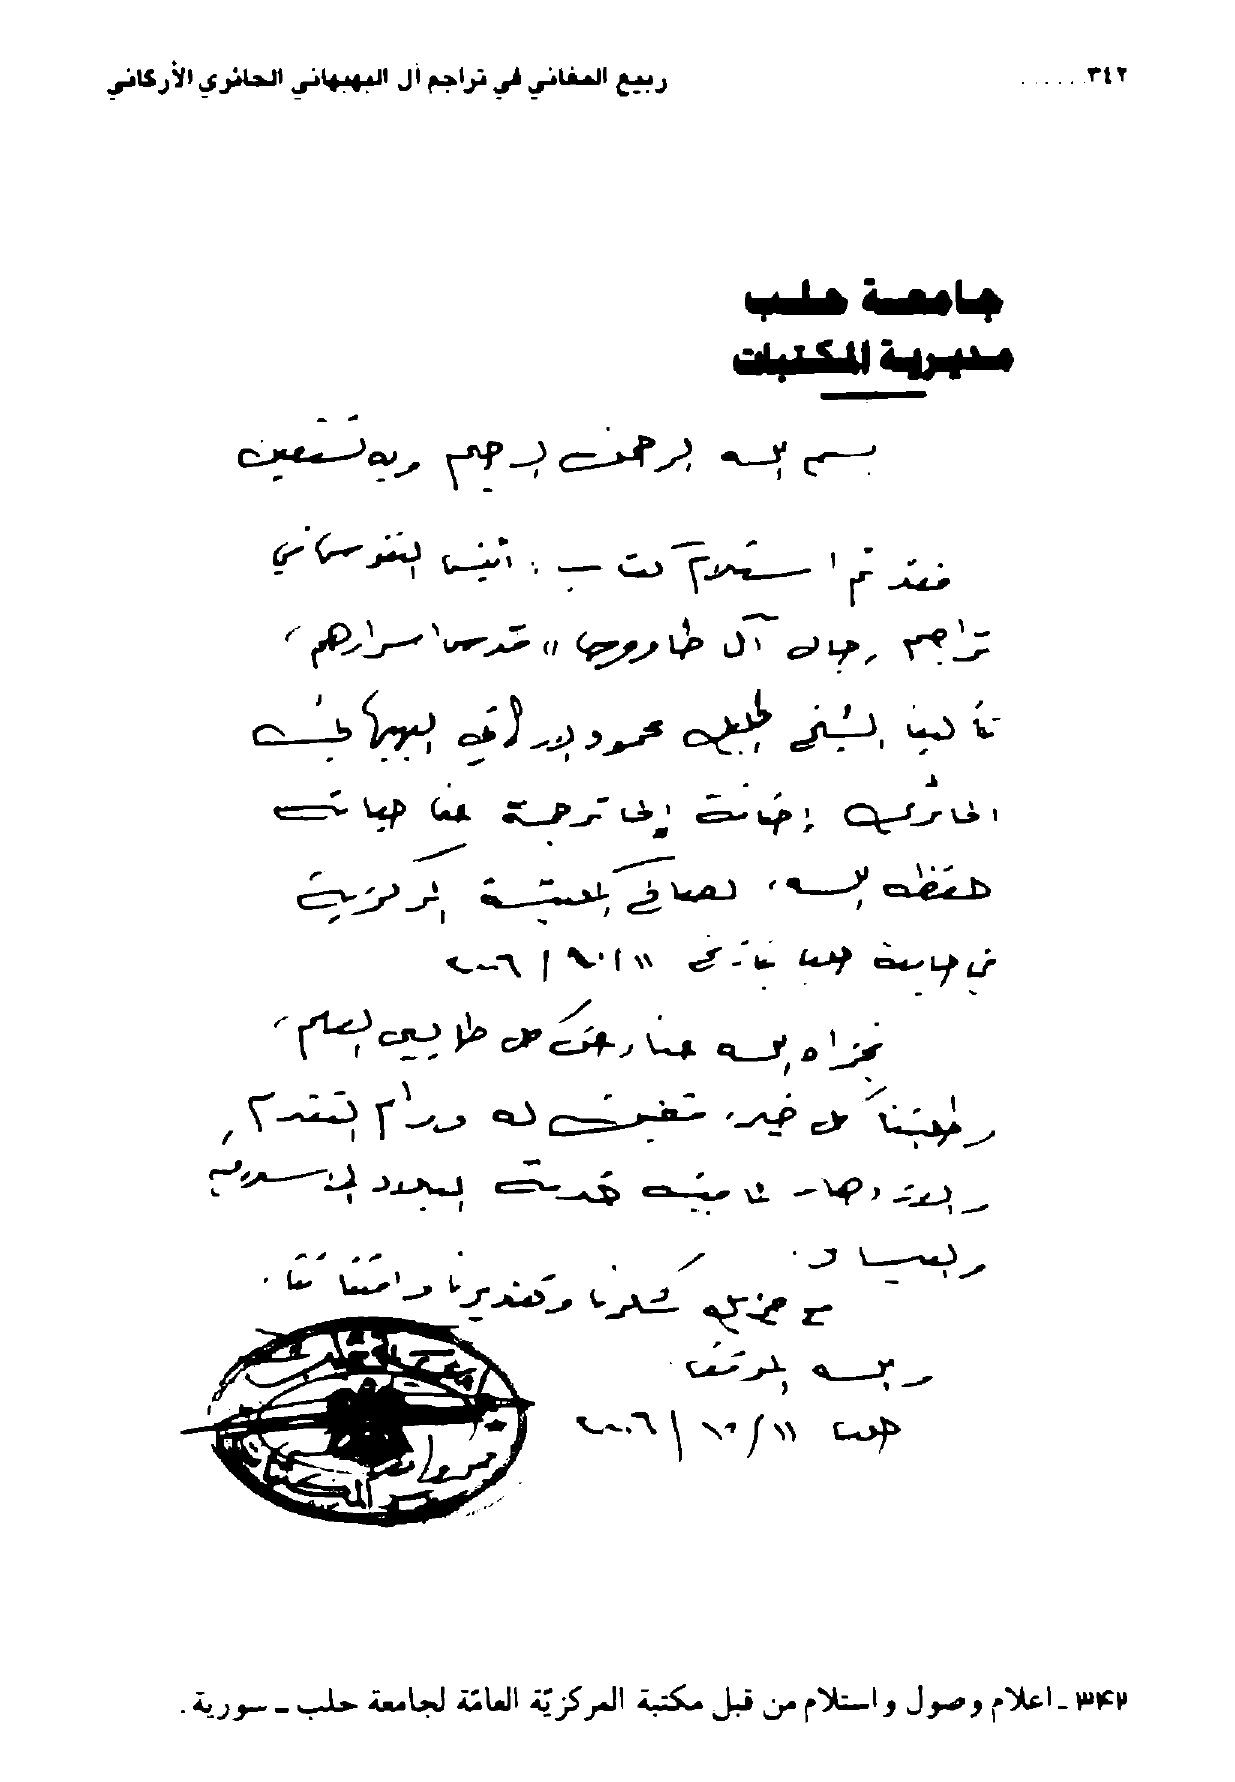 ٣٤٢ ...... ربيع المغاني في تراجم آل البهبهاني الحائري الأركاني
جامعة حلب
مديرية المكتبات
بسم الله الرحمن الرحيم وبه نستعين
فقد تم استلام كتاب: أنيس النفوس في
تراجم رجال آل طاووس "قدس اسرارهم"
تأليف الشيخ الجليل محمود الاركاني البهبهاني
الحائري إضافة إلى ترجمة عن حياته
حفظه الله، لصالح المكتبة المركزية
في جامعة حلب بتاريخ ١١/١٠/٢٠٠٦
فجزاه الله عنا وعن كل طالبي العلم،
وطلبتنا كل خير، متمنين له دوام التقدم
والازدهار لما فيه خدمة البلاد الاسلامية
والعباد.
مع جزيل شكرنا وتقديرنا وامتناننا.
والله الموفق
حلب ١١/١٠/٢٠٠٦
٣٤٢ ـ اعلام وصول واستلام من قبل مكتبة المركزيّة العامّة لجامعة حلب ـ سورية .